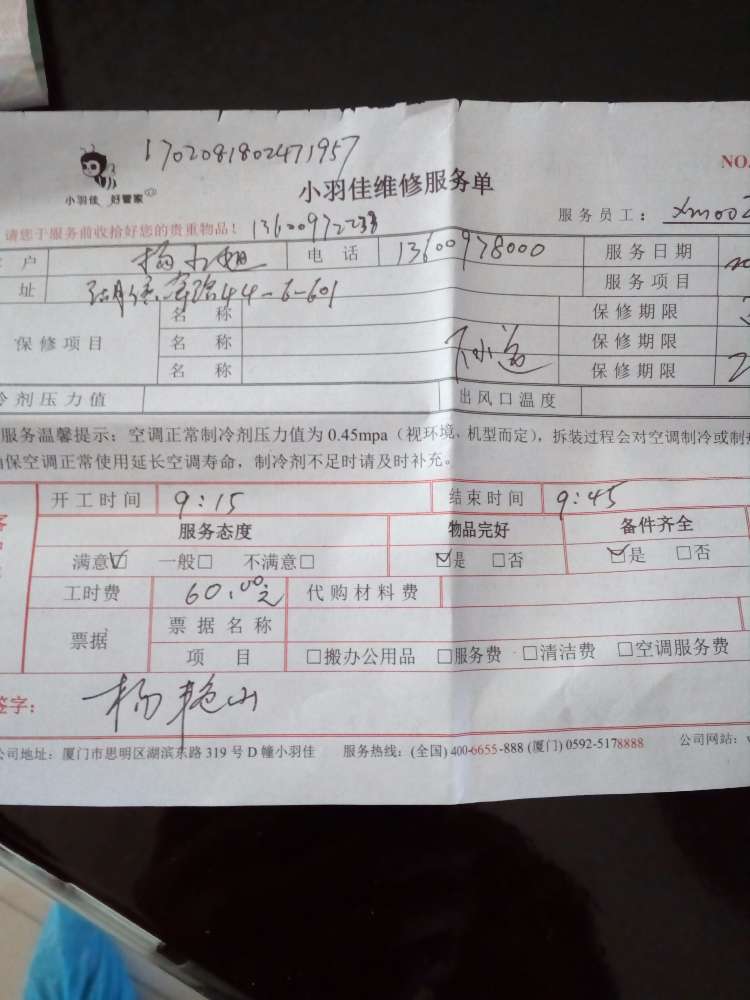 1702081802471957
小羽佳 好管家
小羽佳维修服务单
NO.
请您于服务前收拾好您的贵重物品！ 13600972238
服务员工： xm002
户 杨小姐 电话 13600978000 服务日期
址 44-6-601 服务项目
保修项目 名称 保修期限
名称 保修期限
名称 保修期限
冷剂压力值 出风口温度
服务温馨提示：空调正常制冷剂压力值为 0.45mpa（视环境、机型而定），拆装过程会对空调制冷或制
确保空调正常使用延长空调寿命，制冷剂不足时请及时补充。
开工时间 9:15 结束时间 9:45
服务态度 物品完好 备件齐全
满意☑ 一般□ 不满意□ ☑是 □否 ☑是 □否
工时费 60.00元 代购材料费
票据 票据名称
项目 □搬办公用品 □服务费 □清洁费 □空调服务费
签字： 杨艳山
公司地址：厦门市思明区湖滨东路 319 号 D 幢小羽佳 服务热线：(全国) 400-6655-888 (厦门) 0592-5178888 公司网站：